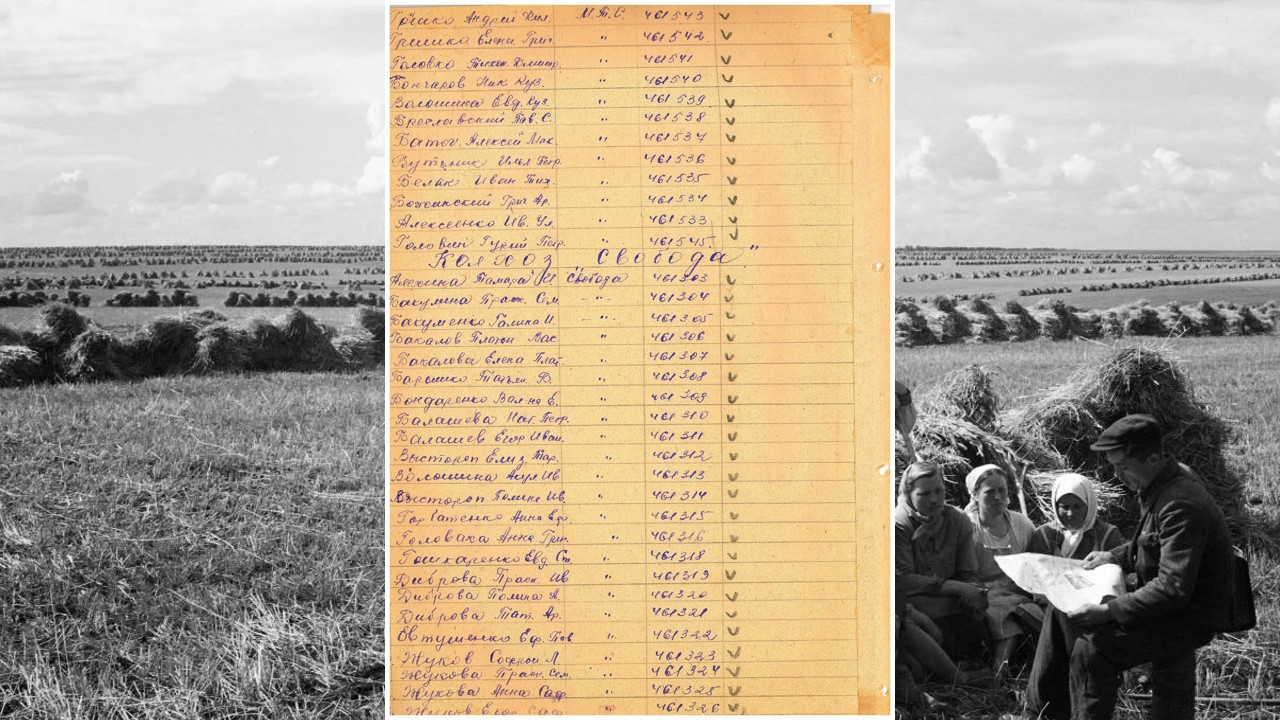 Гришко Андрей Кил. М.Т.С. 461543 ✓
Гришко Елена Григ. " 461542 ✓
Головко Тихон Дмитр. " 461541 ✓
Гончаров Ник Куз. " 461540 ✓
Волошина Евд. Куз. " 461539 ✓
Бреславский Пав. С. " 461538 ✓
Батог Алексей Мак. " 461537 ✓
Бутьник Илья Петр. " 461536 ✓
Белак Иван Тих. " 461535 ✓
Григ. Ар. " 461534 ✓
Алексеенко Ив. Ул. " 461533 ✓
Головий Гурий Петр. " 461545. ✓
Колхоз "Свобода"
Алехина Тамара И Свобода 461303 ✓
Бакумина Праск. Сем. -"- 461304 ✓
Бакуменко Галина И. -"- 461305 ✓
Бакалов Платон Вас " 461306 ✓
Бакалова Елена Плат. " 461307 ✓
Барышко Татьян. Ф. " 461308 ✓
Бондаренко Вал-на Е. " 461309 ✓
Балашева Нат. Петр. " 461310 ✓
Балашев Егор Иван. " 461311 ✓
Высторон Елиз Тар. " 461312 ✓
Волошина Акул Ив " 461313 ✓
Высторон Полина Ив " 461314 ✓
Горбатенко Анна Еф. " 461315 ✓
Головаха Анна Григ. " 461316 ✓
Гошкаренко Евд. Ст. " 461318 ✓
Диброва Праск. Ив " 461319 ✓
Диброва Полина А. " 461320 ✓
Диброва Тат. Ар. " 461321 ✓
Евтушенко Еф. Пав " 461322 ✓
Жуков Софрон Л. " 461323 ✓
Жукова Праск. Сем. " 461324 ✓
Жукова Анна Сафр. " 461325 ✓
Жуков Егор Саф. " 461326 ✓